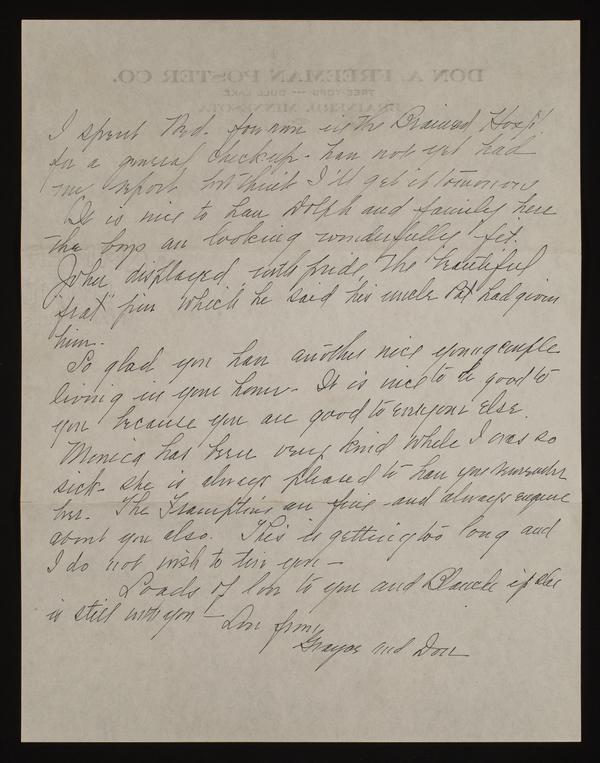 DON A. FREEMAN POSTER CO.
TREE-TOPS — GULL LAKE
BRAINERD, MINNESOTA
I spent Wed. forenoon in the Brainerd Hosp'l
for a general checkup - have not yet had
my report but think I'll get it tomorrow
It is nice to have Dolph and family here
The boys are looking wonderfully fit.
John displayed with pride the beautiful
"frat" pin which he said his uncle Pat had given
him.
So glad you have another nice young couple
living in your home. It is nice to be good to
you because you are good to everyone else.
Monica has been very kind while I was so
sick - she is always pleased to have you remember
her. The Framptins are fine - and always enquire
about you also. This is getting too long and
I do not wish to tire you -
Loads of love to you and Blanche if she
is still with you - Love from
Grayce and Don